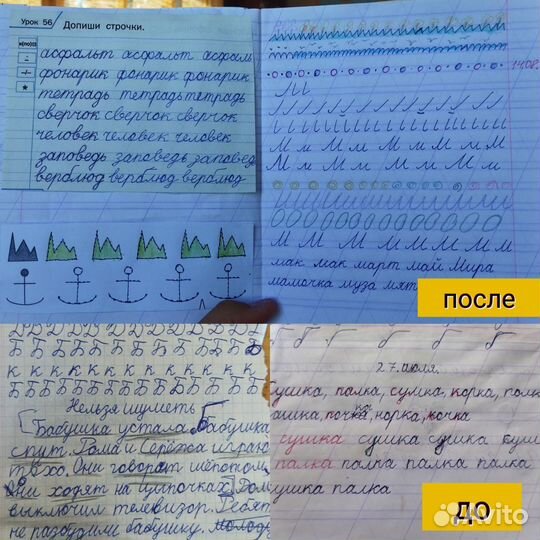 Урок 56
Допиши строчки.
асфальт асфальт асфаль
фонарик фонарик фонарик
тетрадь тетрадь тетрадь
сверчок сверчок сверчок
человек человек человек
заповедь заповедь заповед
верблюд верблюд верблюд
14.08.
М м М м М м М м М
М м м М М м М м
М М М М м м М м м
мак мак март май Мира
мамочка муза мят
после
Д Д Д Д Д Д Д Д Д Д Д
Б Б Б Б Б Б Б Б Б Б Б
к к к к к к к к к к к
Б Б Б Б Б Б Б Б Б Б Б Б
Нельзя шуметь
Бабушка устала. Бабушка
спит. Рома и Серёжа играю
тихо. Они говорят шёпотом
Они ходят на цыпочках. Ром
выключили телевизор. Ребят
не разбудили бабушку. Молодц
Г Г Г Г
27 июля.
сушка, палка, сумка, корка, полк
ашка, почка, норка, кочка
сушка сушка сушка суш
палка палка палка палка
сушка палка
до
Avito